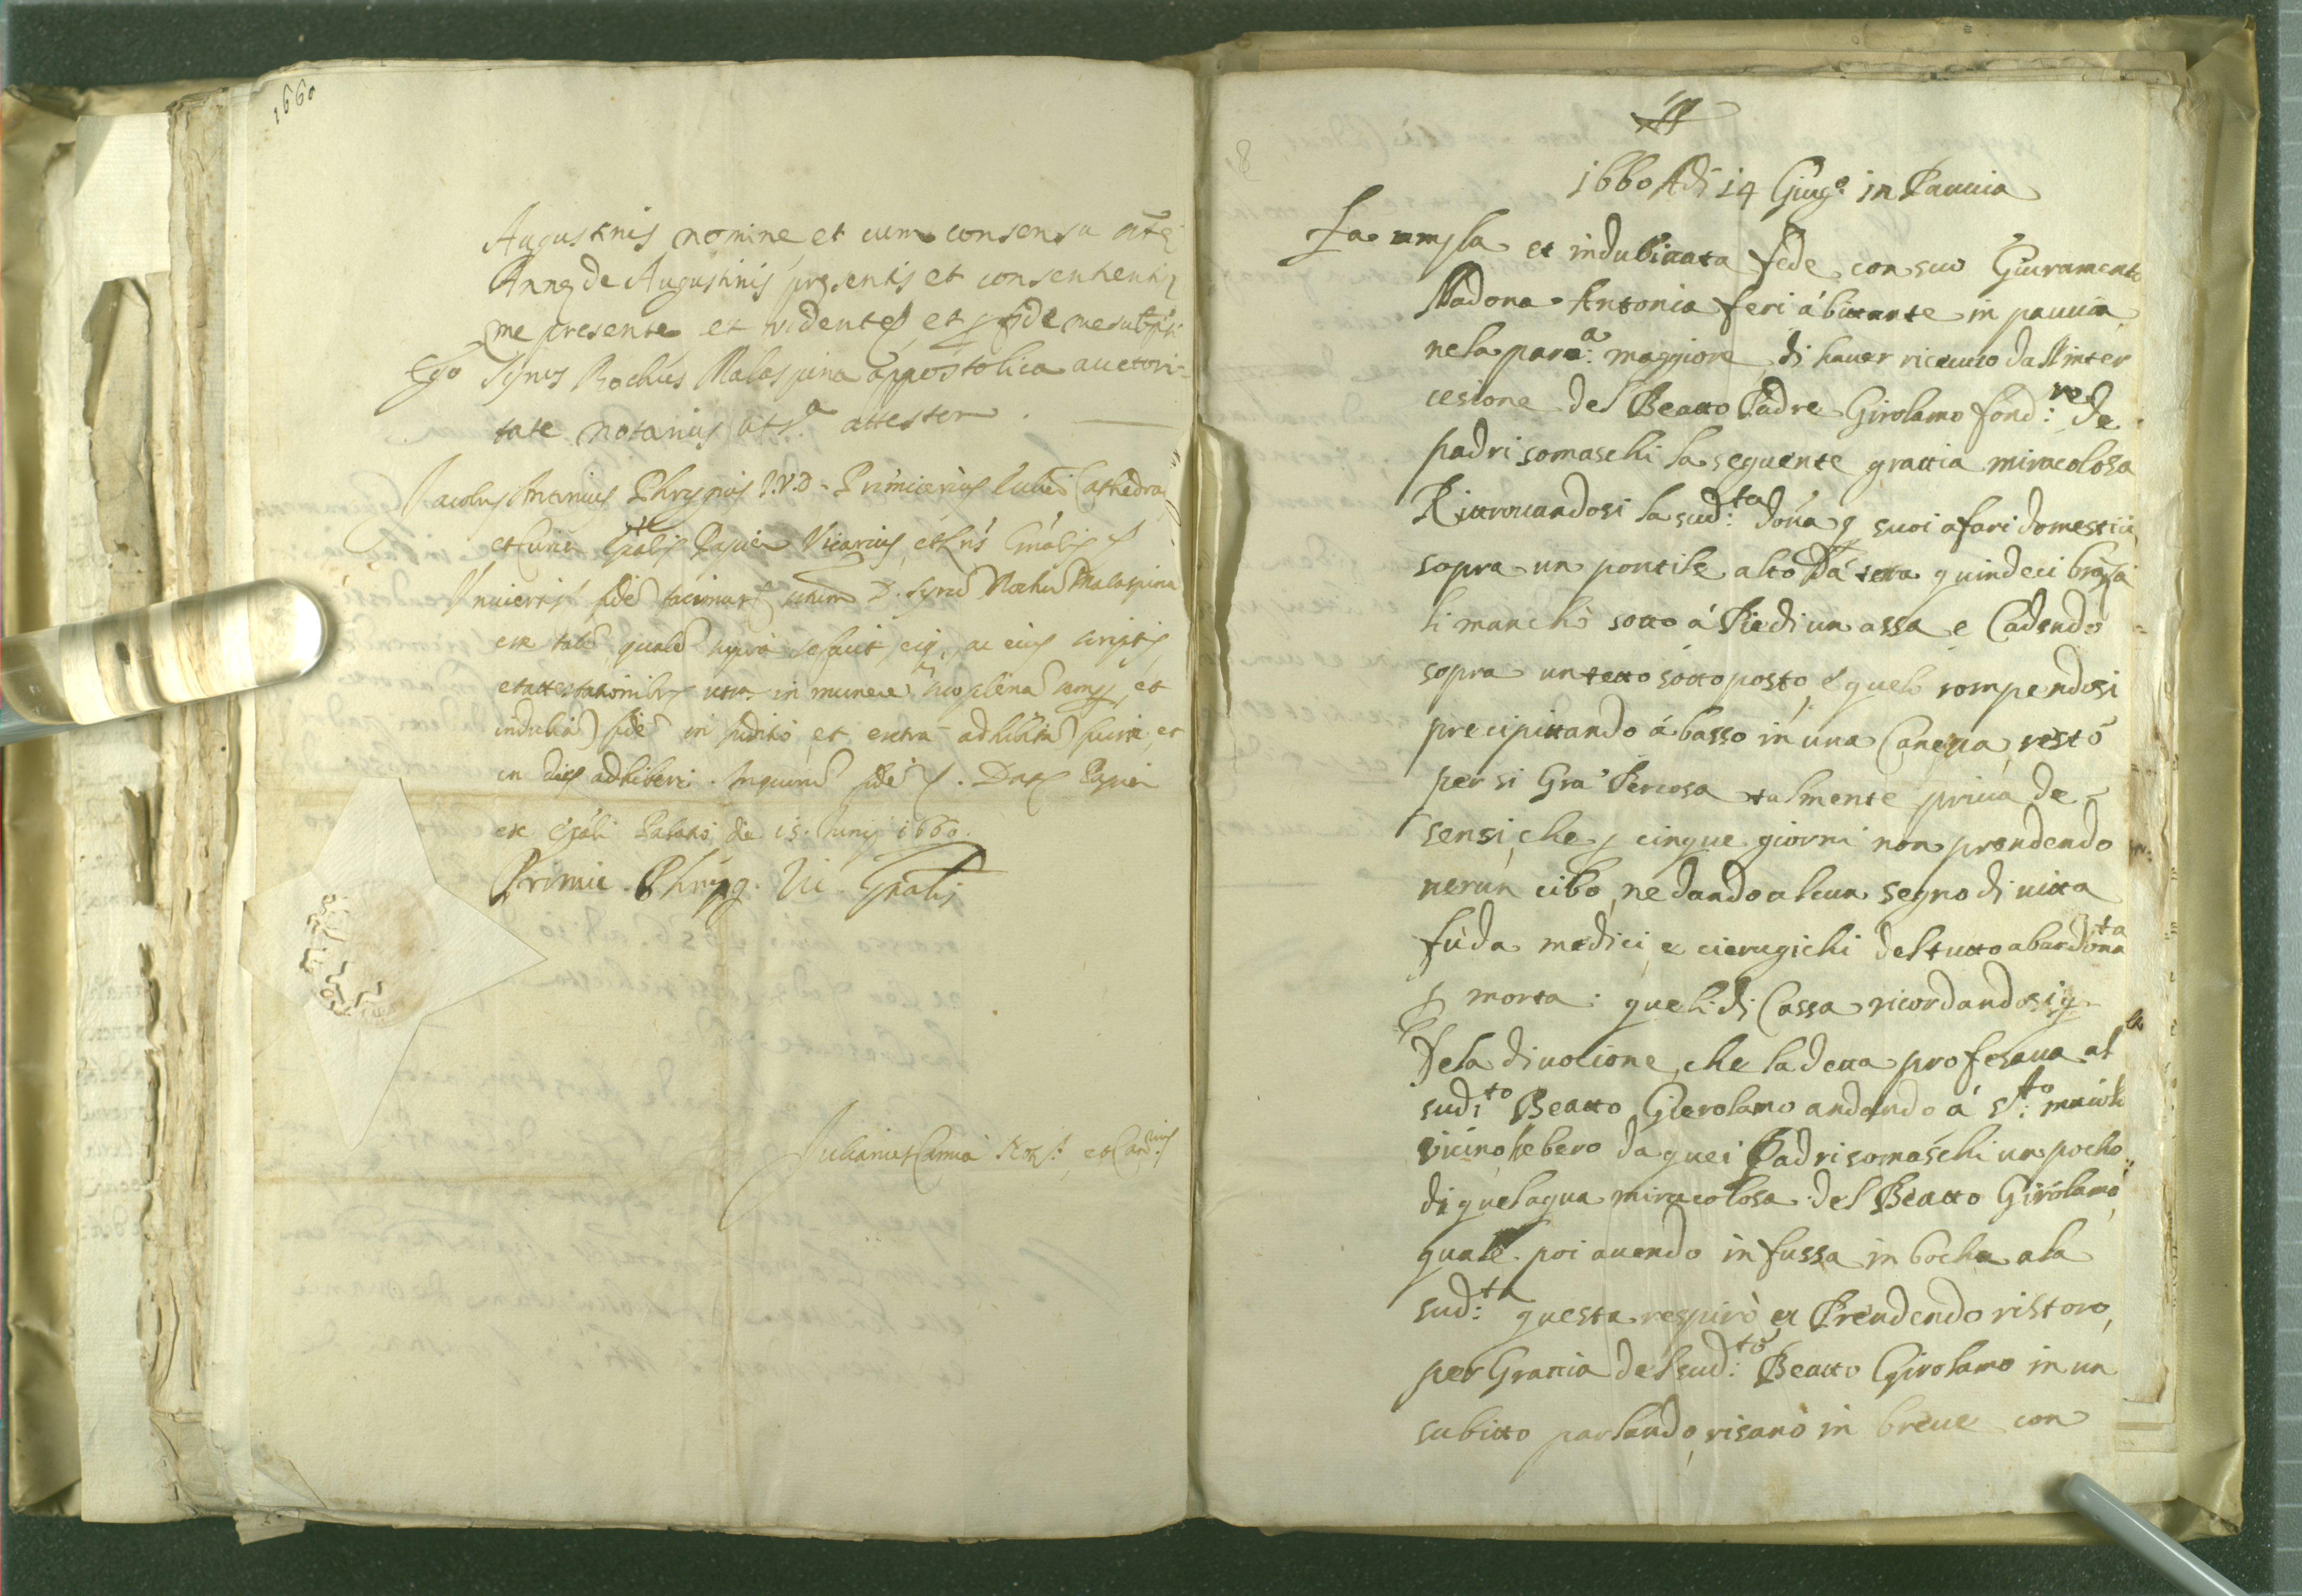 1660
Augustinis nomine et cum consensu
Annę de Augustinis pręsentis et consentientis
me presente et vidente et fide me subscripsi
Ego Syrus Rochus Malaspina appostolica auctori-
tate notarius attestor.
Jacobus Antonius Phrygius I.V.D. Primicerius Cathedralis
Papiæ Vicarius Gnalis
Universis fidē facimus D. Syrū Rochū Malaspina
esse talē qualē supra se facit, eiq; ac eius scriptis
et attestationibus in munere plenā semp et
indubiā fidē in juditio et extra adhibitā fuisse et
in dies adhiberi. In quorum fidē. Dat. Papiæ
ex Palatio die 15. Junij 1660.
Primic. Phryg. Vic. Gnalis
Julianus et Canc.
8
1660 Adi 14 Giug.o in Pauuia
Fa ampla et indubitata fede con suo Giuramento
Madona Antonia feri abitante in pauuia
nela para:a maggiore di hauer riceuuto dall inter
cesione del Beatto Padre Girolamo fond:re de
padri somaschi la seguente grattia miracolosa
Ritrouandosi la sud:ta dona p suoi afari domestici
sopra un pontile alto da tera quindeci brazza
li manchò sotto á Piedi un assa e Cadendo
sopra un tetto sotto posto, e quelo rompendosi
precipittando á basso in una Caneua, restò
per si Gra Percosa talmente priua de
sensi, che p cinque giorni non prendendo
nerun cibo, ne dando alcun segno di uitta
fú da medici, e cierugichi del tutto abandonata
p morta: queli di Cassa ricordandosi
Dela diuotione, che la detta profesaua al
sud:to Beatto Gierolamo andando á S:to maiolo
vicino, hebero da quei Padri somaschi un pocho
di quel aqua miracolosa del Beatto Girolamo,
quale poi auendo infussa in bocha ala
sud:ta questa respirò et Prendendo ristoro,
per Grattia del sud:to Beatto Girolamo in un
subitto parlando, risanò in breue con